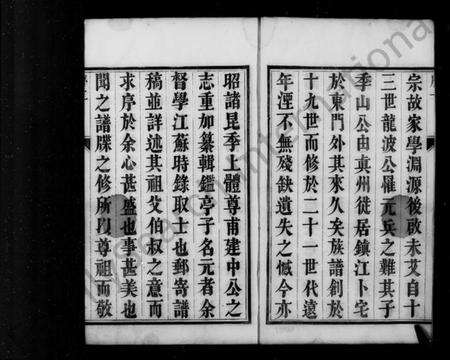 宗故家學淵源後啟未艾自十
三世龍波公罹元兵之難其子
季山公由真州徙居鎮江卜宅
於東門外其來久矣族譜創於
十九世而修於二十一世代遠
年湮不無殘缺遺失之憾今亦
昭諸昆季上體尊甫建中公之
志重加纂輯鑑亭子名元者余
督學江蘇時錄取士也郵寄譜
稿並詳述其祖父伯叔之意而
求序於余心甚盛也事甚美也
聞之譜牒之修所以尊祖而敬